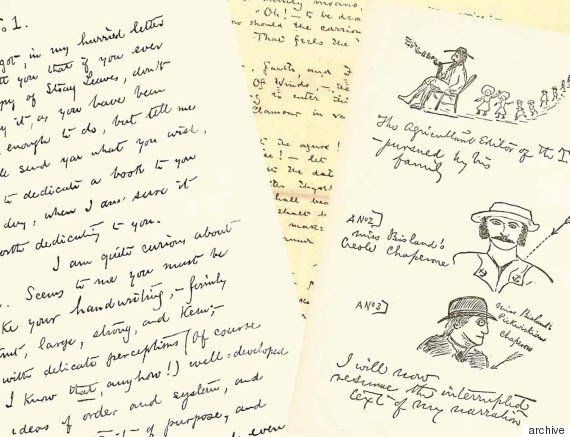 o 1.
got, in my hurried letter
you that if you ever
py of Stray Leaves, don't
y it, as you have been
enough to do, but tell me
ll send you what you wish,
to dedicate a book to you
day, when I am sure it
orth dedicating to you.
I am quite curious about
. Seems to me you must be
ke your handwriting, – firmly
nt, large, strong, and Keen;
with delicate perceptions (Of course
I know that, anyhow!) well-developed
ideas of order and system, and
of purpose, and
even
means,
"Oh!" – to be dra
should the carrion
That feels the
Earth, and
Of Winds, – the
to enter
Glamour in
the azure!
– let
to the
shall be
shall
make
The Agricultural Editor of the T.
– pursued by his
family
A No 2,
Miss Bisland's
Creole Chaperone
A No 3
Miss Bisland's
Pickwickian
Chaperone
I will now
resume the interrupted
text of my narration
archive